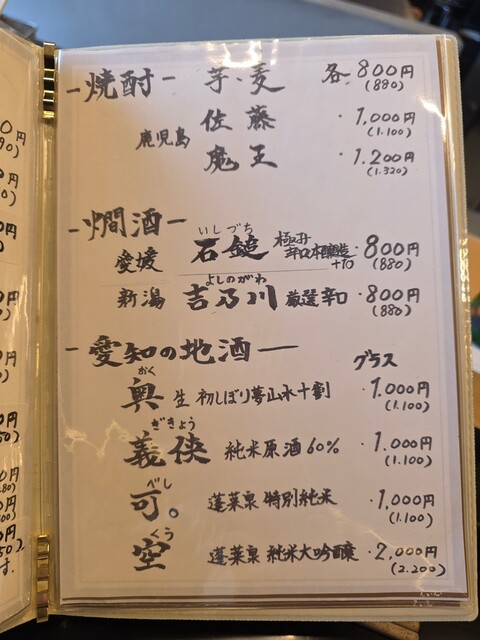 -焼酎- 芋、麦 各800円
(880)
鹿児島 佐藤 ・1,000円
(1.100)
魔王 ・1.200円
(1.320)
-燗酒-
いしづち
愛媛 石鎚 極辛口本醸造+10 ・800円
(880)
よしのがわ
新潟 吉乃川 厳選辛口 ・800円
(880)
-愛知の地酒― グラス
おく
奥 生 初しぼり夢山水十割 ・1,000円
(1.100)
ぎきょう
義侠 純米原酒60% ・1.000円
(1.100)
べし
可。 蓬莱泉 特別純米 ・1,000円
(1.100)
くう
空 蓬莱泉 純米大吟醸 ・2,000円
(2.200)